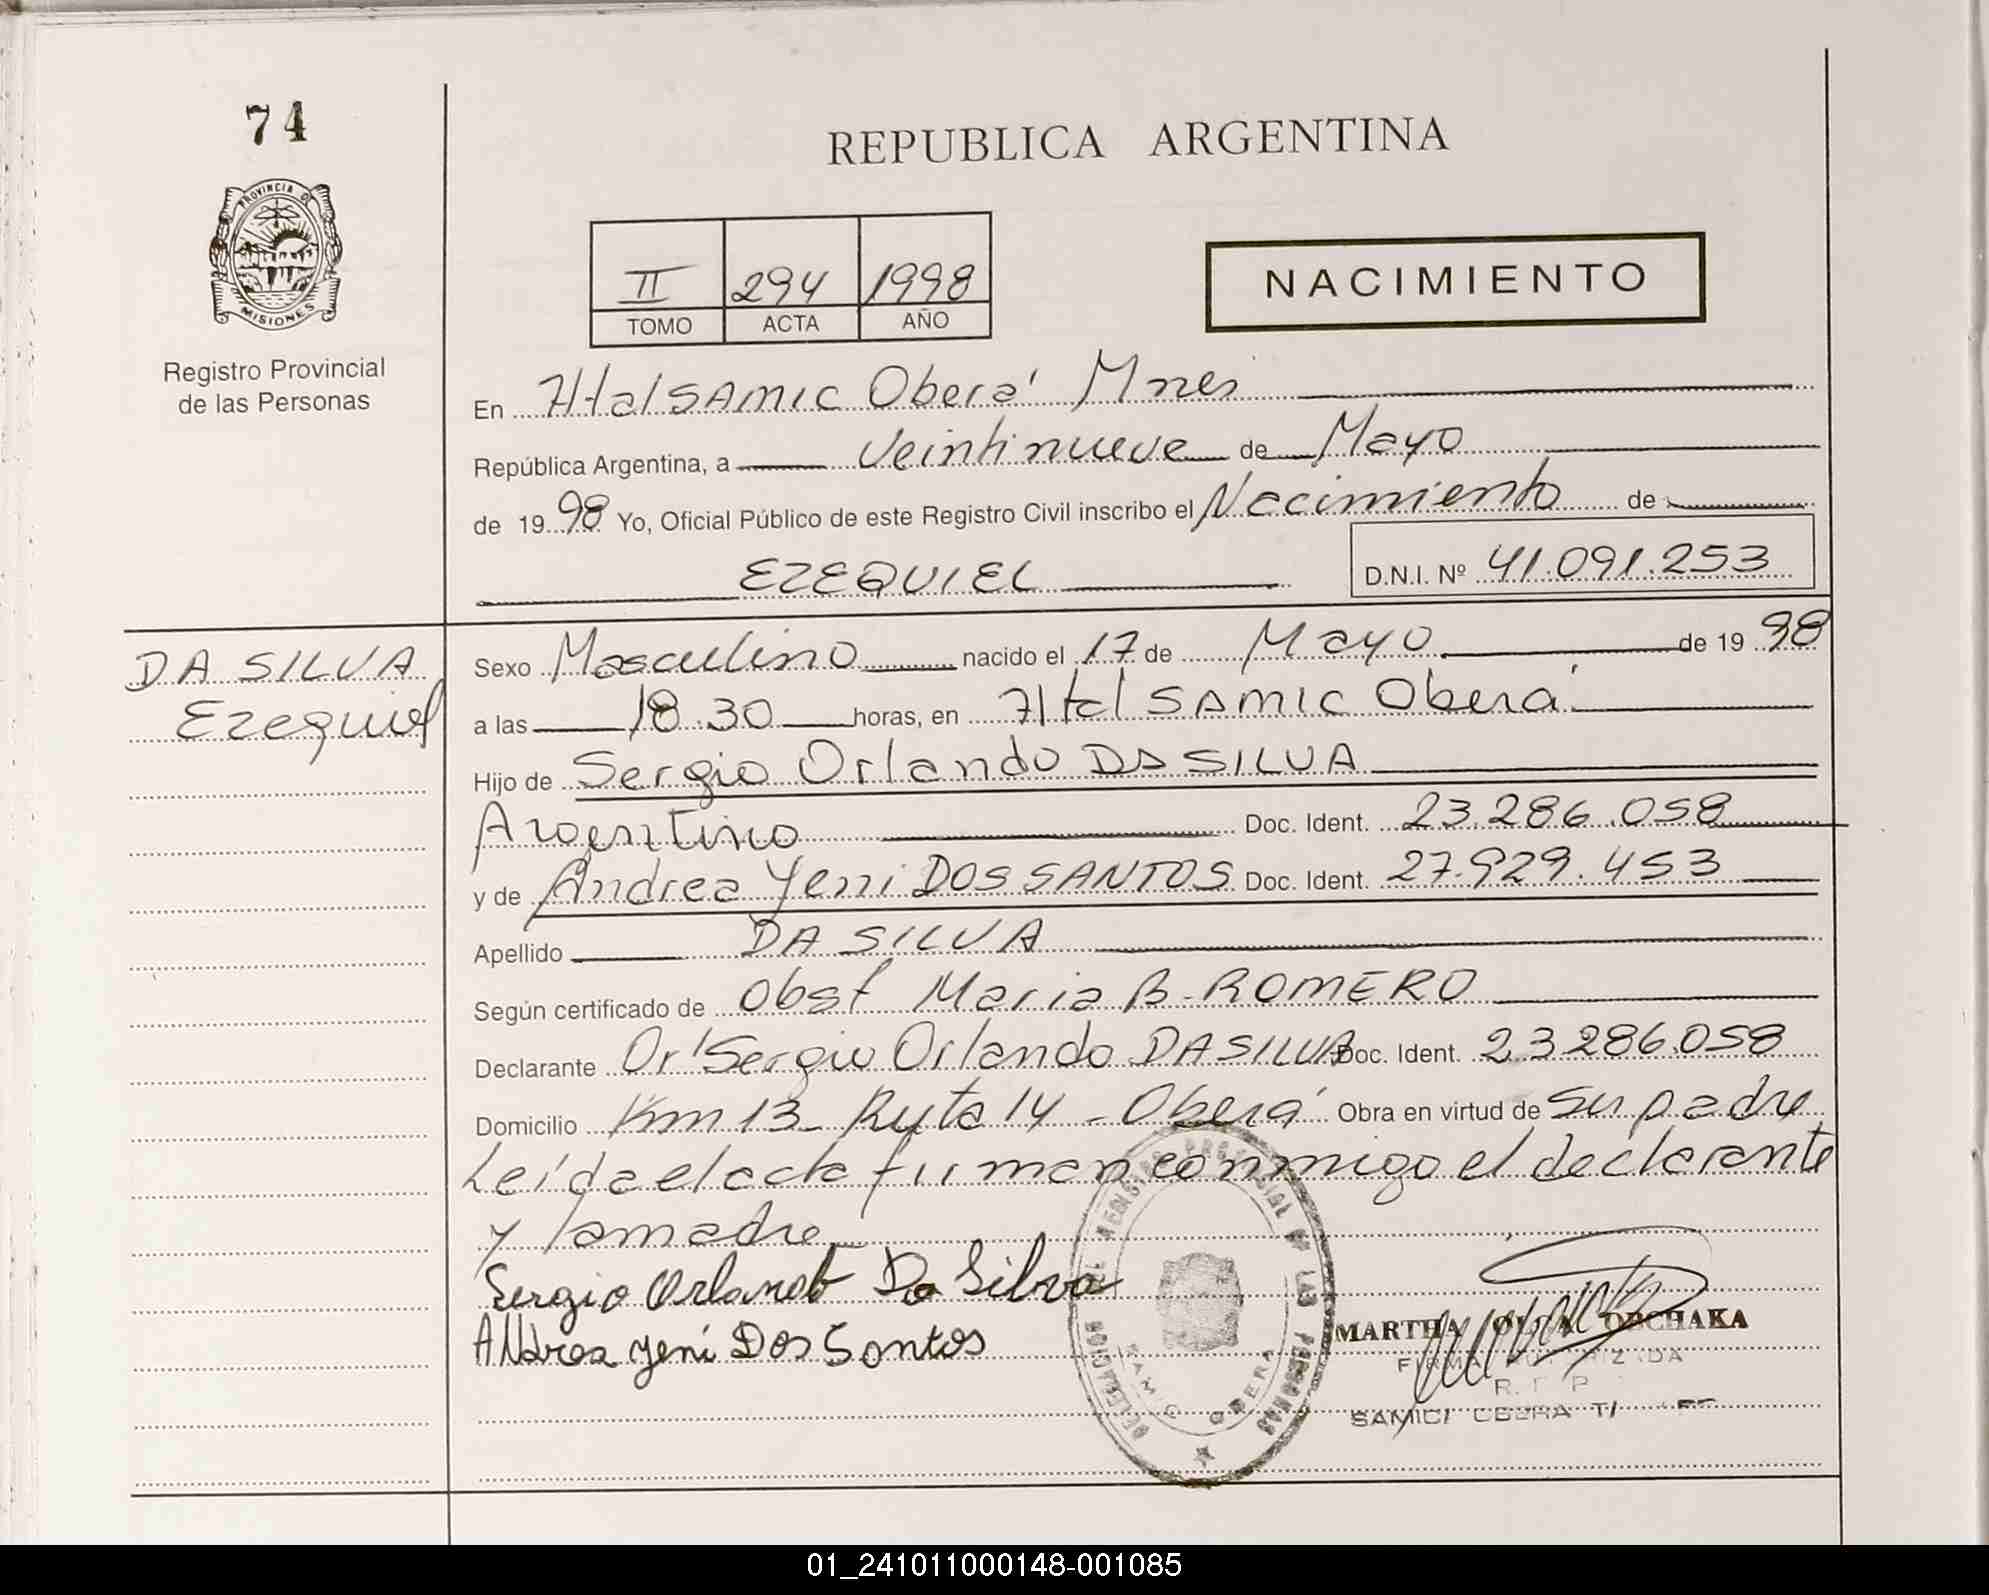 74
PROVINCIA DE
MISIONES
Registro Provincial
de las Personas
REPUBLICA ARGENTINA
II 294 1998
TOMO ACTA AÑO
NACIMIENTO
En Htal SAMIC Oberá Mnes
República Argentina, a veintinueve de Mayo
de 1998 Yo, Oficial Público de este Registro Civil inscribo el Nacimiento de
EZEQUIEL D.N.I. Nº 41.091.253
DA SILVA
Ezequiel
Sexo Masculino nacido el 17 de Mayo de 1998
a las 18.30 horas, en Htal SAMIC Oberá
Hijo de Sergio Orlando DA SILVA
Argentino Doc. Ident. 23.286.058
y de Andrea Yeni DOS SANTOS Doc. Ident. 27.929.453
Apellido DA SILVA
Según certificado de Obst Maria B. ROMERO
Declarante Sergio Orlando DA SILVA Doc. Ident. 23286.058
Domicilio Km 13 Ruta 14 - Oberá Obra en virtud de Su padre
Leída el acta firman conmigo el declarante
y la madre
Sergio Orlando Da Silva
Andrea Yeni Dos Santos
DE LAS PERSONAS
SAMIC OBERA
MARTHA OBCHAKA
FIRMA
SAMIC OBERA
01_241011000148-001085